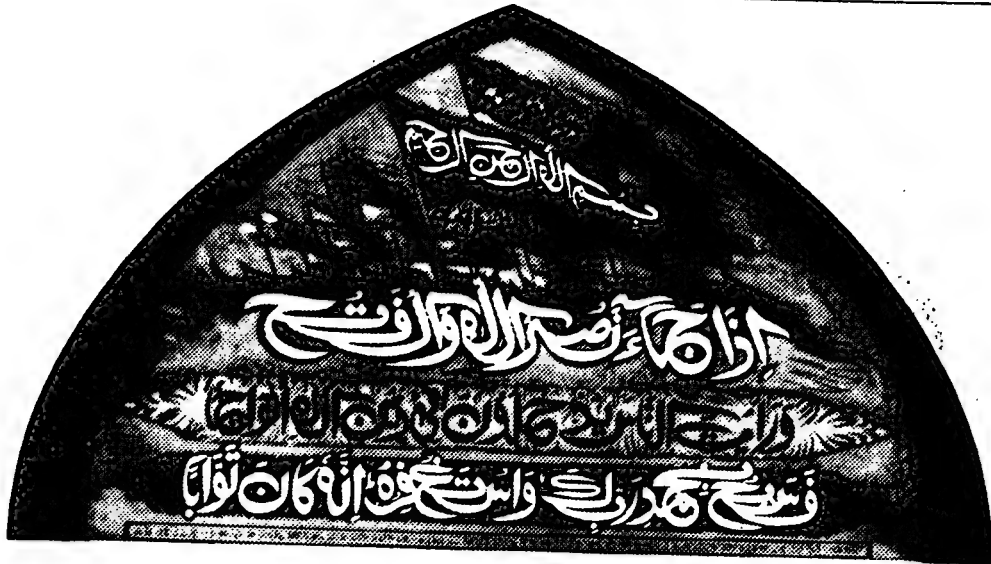 بسم الله الرحمن الرحيم
إِذَا جَآءَ نَصْرُ اللهِ وَالْفَتْحُ
ورأيت الناس يدخلون في دين الله أفواجا
فَسَبِّحْ بِحَمْدِ رَبِّكَ وَاسْتَغْفِرْهُ إِنَّهُ كَانَ تَوَّابًا